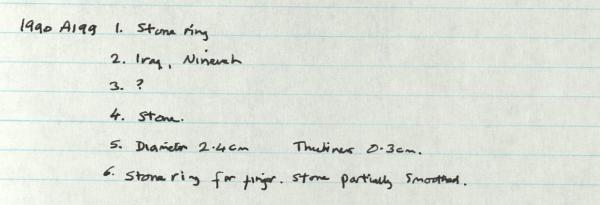 1990 A199 1. Stone ring
2. Iraq, Nineveh
3. ?
4. Stone.
5. Diameter 2.4cm Thickness 0.3cm.
6. Stone ring for finger. Stone partially smoothed.